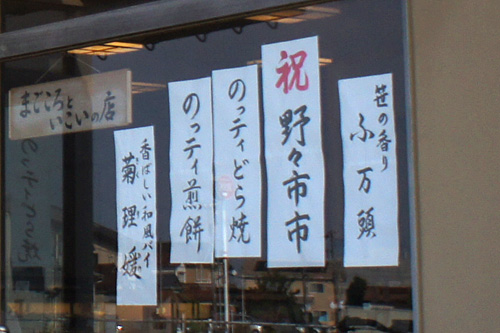 まごころと
いこいの店
笹の香り
ふ万頭
祝野々市市
のっティどら焼
のっティ煎餅
香ばしい和風パイ
菊理媛
のっティどら焼